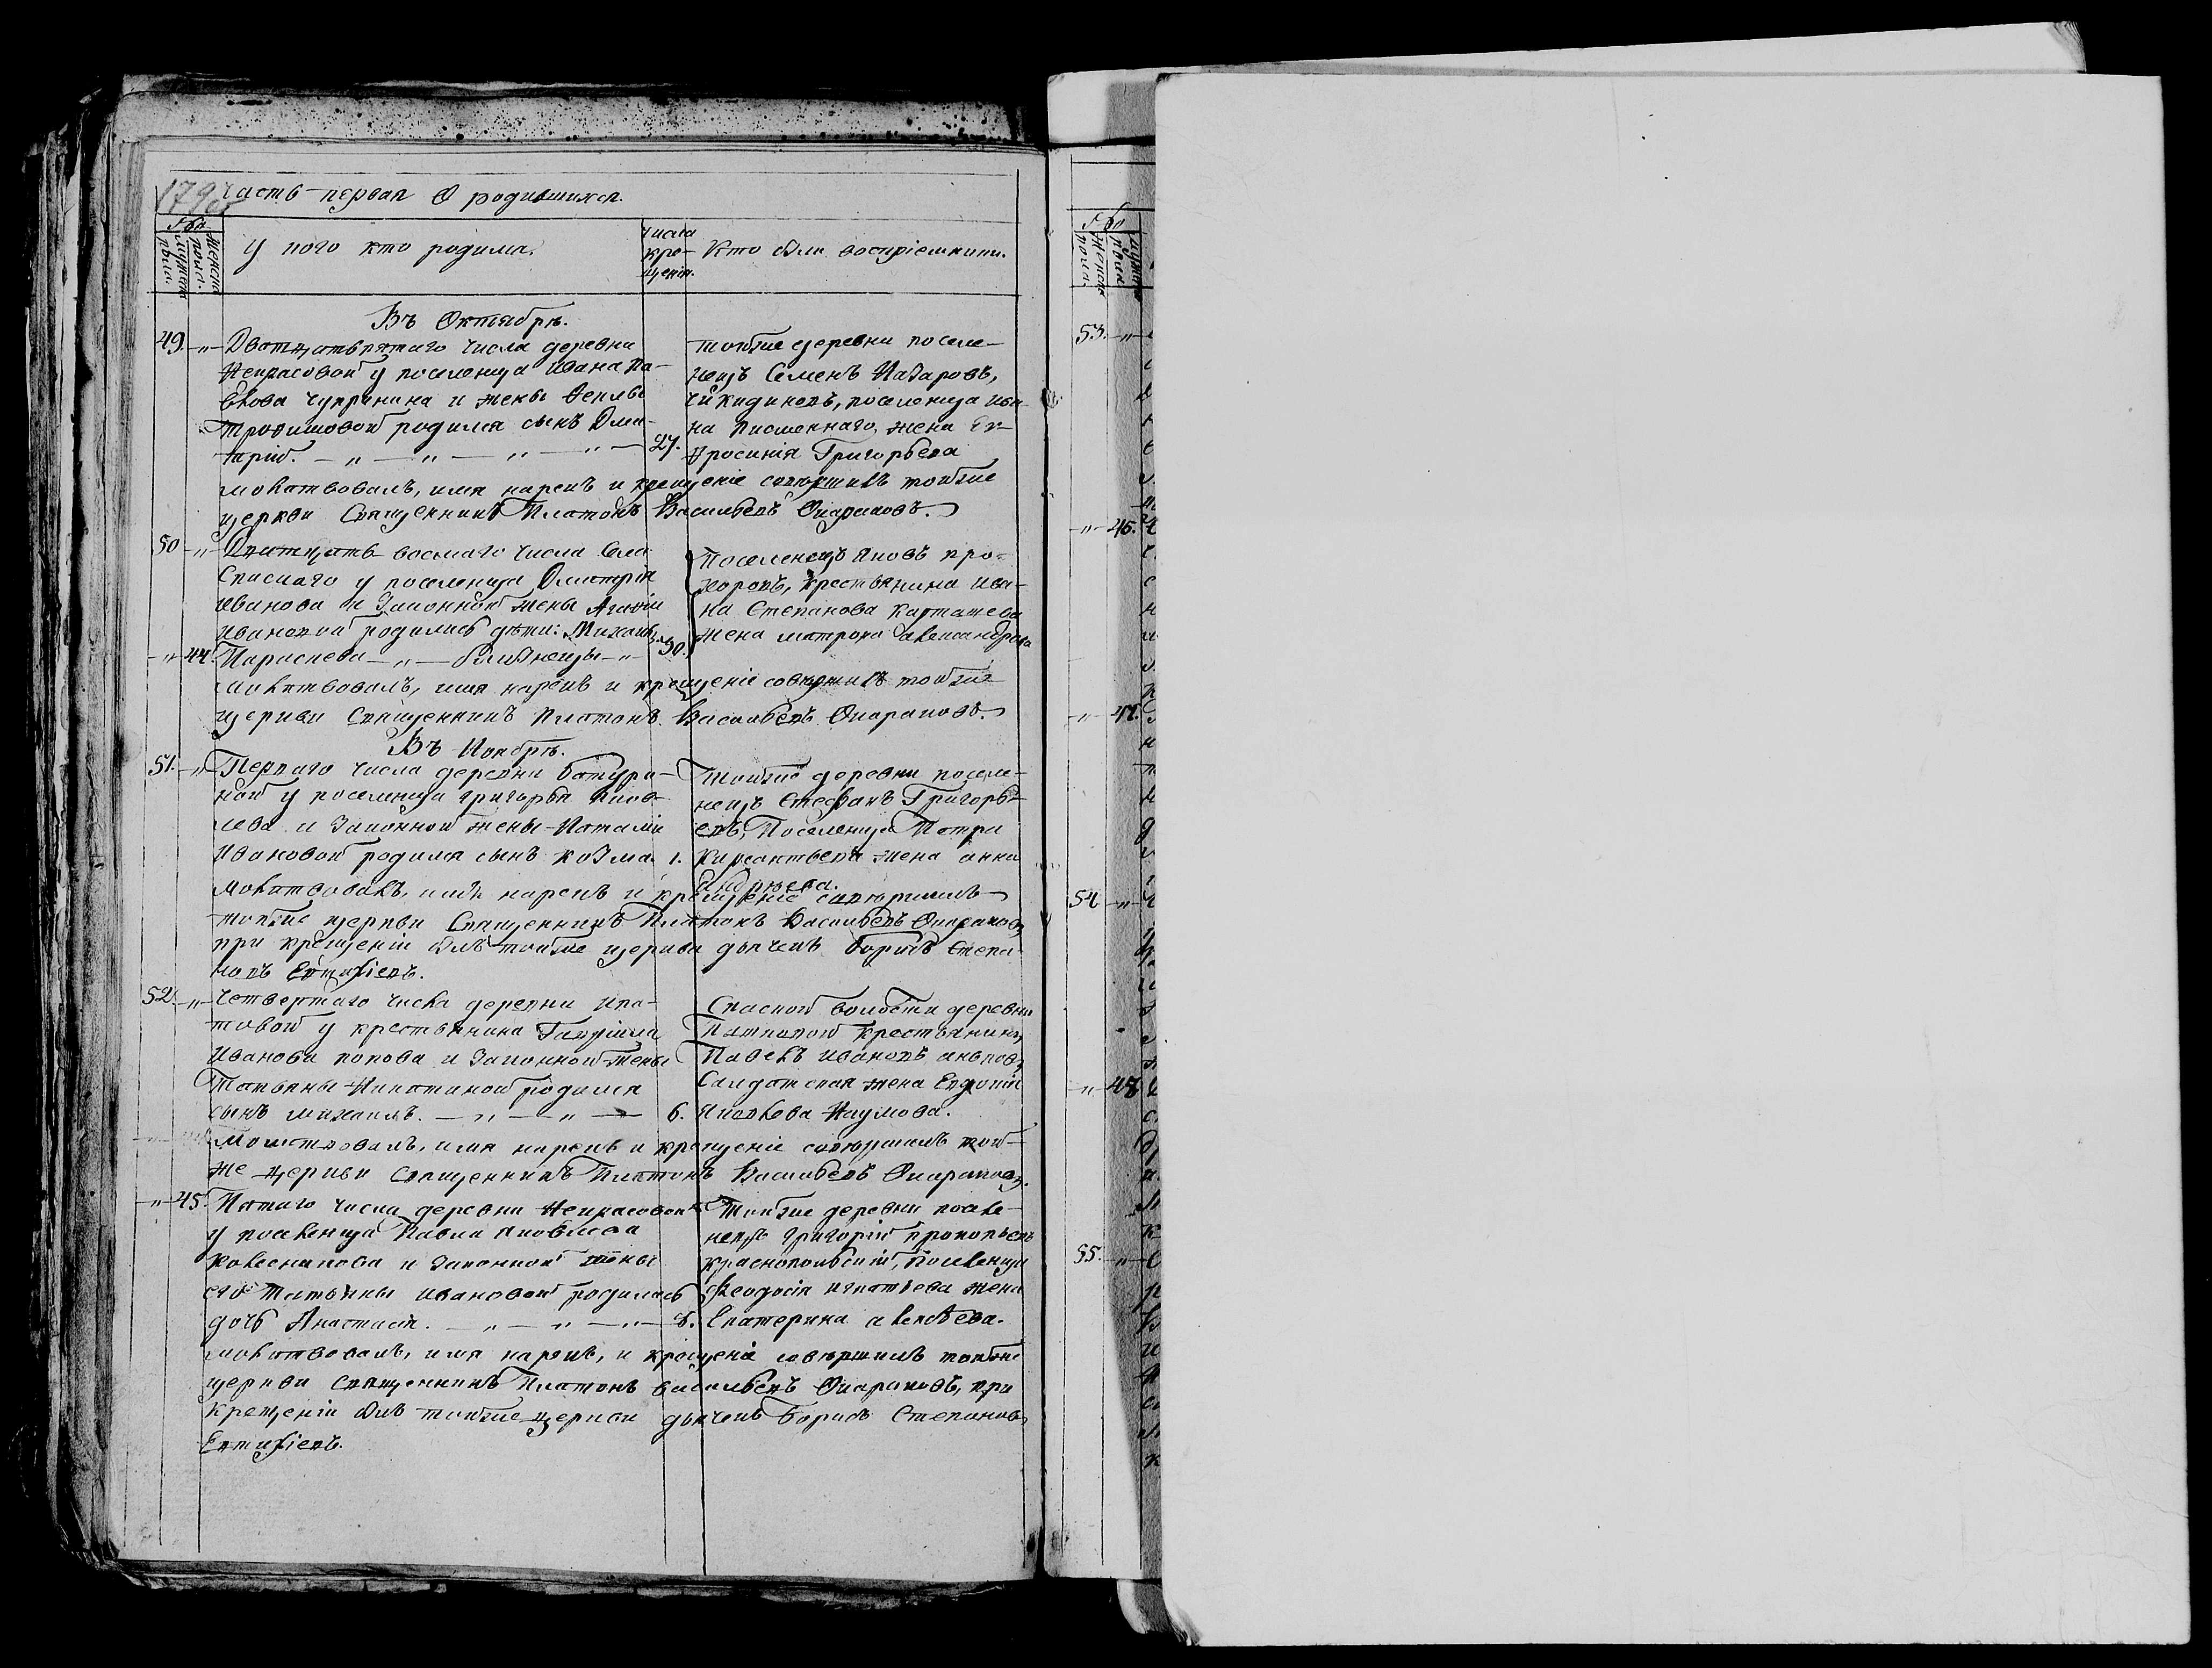 Часть первая О родившихся.
Мужеска пола.
Женска пола.
У кого кто родился.
Числа крещенія.
Кто были воспріемники.
Въ Октябрѣ.
49. Дватцатьпятаго числа деревни
Некрасовой у поселенца Ивана Па-
влова Чупринина и жены Феклы
Трофимовой родился сынъ Дми-
трій. 27.
тойже деревни поселе-
нецъ Семенъ Назаровъ,
Чикидиневъ, поселенца Ива-
на Писменнаго, жена Ев-
фросинія Григорьева
молитвовалъ, имя нарекъ и крещеніе совершилъ тойже
церкви Священникъ Платонъ Васильевъ Омараковъ.
50 Дватцать восмаго числа Села
Спаскаго у поселенца Дмитрія
Иванова и законной жены Агафіи
Ивановой родились дѣти: Михаилъ,
44. Параскева близнецы 30.
Поселенецъ Яковъ Про-
хоровъ, крестьянина Ива-
на Степанова Карташева
жена Матрона Александрова
Молитвовалъ, имя нарекъ и крещеніе совершилъ тойже
церкви Священникъ Платонъ Васильевъ Омараковъ.
Въ Ноябрѣ.
51. Перваго числа деревни Батури-
ной у поселенца Григорья Яков-
лева и законной жены Наталіи
Ивановой родился сынъ Козма. 1.
тойже деревни поселе-
нецъ Стефанъ Григорь-
евъ, Поселенца Петра
жена Анна
Андреева.
молитвовалъ, имя нарекъ и крещеніе совершилъ
тойже церкви Священникъ Платонъ Васильевъ Омараковъ,
при крещеніи былъ тойже церкви дьячекъ Борисъ Степа-
новъ Евтифіевъ.
52. Четвертаго числа деревни Ипа-
товой у крестьянина Гавріила
Иванова Попова и законной жены
Татьяны Никитиной родился
сынъ Михаилъ. 6.
Спаской волости деревни
крестьянинъ
Павелъ Ивановъ
Салдатская жена Евдокія
Яковлева Наумова.
Молитвовалъ, имя нарекъ и крещеніе совершилъ той-
же церкви священникъ Платонъ Васильевъ Омараковъ.
45. Пятаго числа деревни Некрасовой
у поселенца Павла Яковлева
Колесникова и законной жены
его Татьяны Ивановой родилась
дочь Анастасія. 6.
Тойже деревни поселе-
нецъ Григорій Прокопьевъ
Краснопольскій, Поселенца
Феодосія Игнатьева жена
Екатерина Алексѣева.
молитвовалъ, имя нарекъ, и крещеніе совершилъ тойже
церкви священникъ Платонъ Васильевъ Омараковъ, при
крещеніи былъ тойже церкви дьячекъ Борисъ Степановъ
Евтифіевъ.
53.
46.
47.
54
48
55.